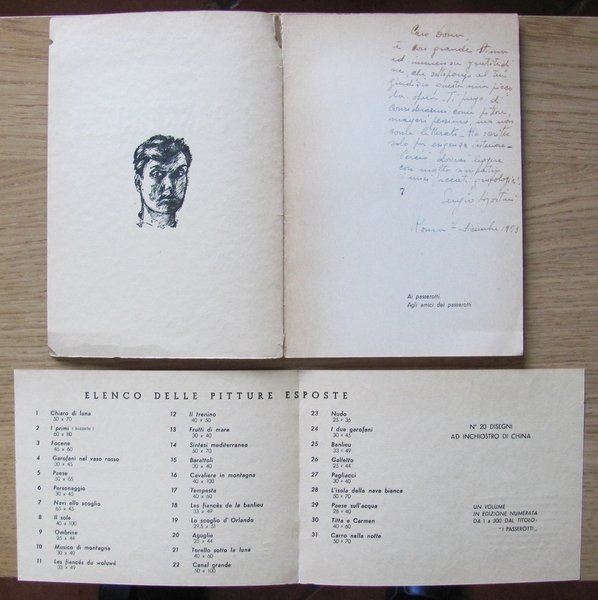 Caro Donni,
è con grande stima
ed immensa gratitudi
ne che sottopongo al tuo
giudizio questa mia picco
la opera. Ti prego di
considerarmi come pittore,
magari pessimo, ma non
come letterato. Ho scritto
solo per esigenza interiore
Perciò dovrai leggere
con molta simpatia
7
Roma 7 Dicembre 1953
Ai passerotti.
Agli amici dei passerotti.
ELENCO DELLE PITTURE ESPOSTE
1 Chiaro di luna
50 x 70
2 I primi (bozzetto)
60 x 80
3 Focene
45 x 65
4 Garofani nel vaso rosso
30 x 45
5 Paese
50 x 65
6 Personaggio
30 x 40
7 Navi allo scoglio
65 x 45
8 Il sole
40 x 100
9 Ombrine
25 x 44
10 Musica di montagna
30 x 40
11 Les fiancés du woluwé
33 x 49
12 Il trenino
40 x 50
13 Frutti di mare
30 x 40
14 Sintesi mediterranea
50 x 70
15 Barattoli
30 x 40
16 Cavaliere in montagna
40 x 100
17 Tempesta
40 x 60
18 Les fiancés de la banlieu
33 x 49
19 Lo scoglio d'Orlando
29,5 x 51
20 Aguglie
25 x 44
21 Torello sotto la luna
40 x 60
22 Canal grande
50 x 100
23 Nudo
25 x 36
24 I due garofani
30 x 45
25 Banlieu
33 x 49
26 Galletto
25 x 44
27 Pagliacci
30 x 40
28 L'isola della nave bianca
50 x 70
29 Paese sull'acqua
28 x 40
30 Titta e Carmen
40 x 60
31 Carro nella notte
50 x 70
N° 20 DISEGNI
AD INCHIOSTRO DI CHINA
UN VOLUME
IN EDIZIONE NUMERATA
DA 1 a 300 DAL TITOLO:
"I PASSEROTTI„